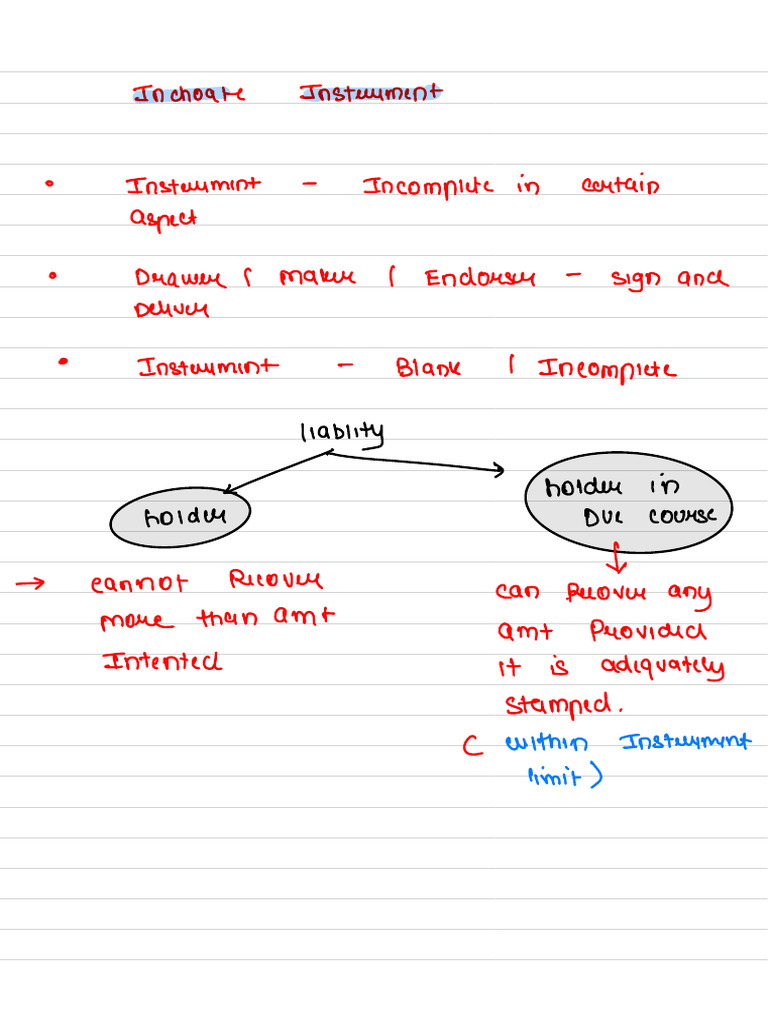 Inchoate Instrument
• Instrument - Incomplete in certain
aspect
• Drawer / Maker / Endorser - sign and
Deliver
• Instrument - Blank / Incomplete
liablity
holder
holder in
Due course
→ cannot Recover
more than amt
Intented
can Recover any
amt Provided
it is adequately
stamped.
( within Instrument
limit)